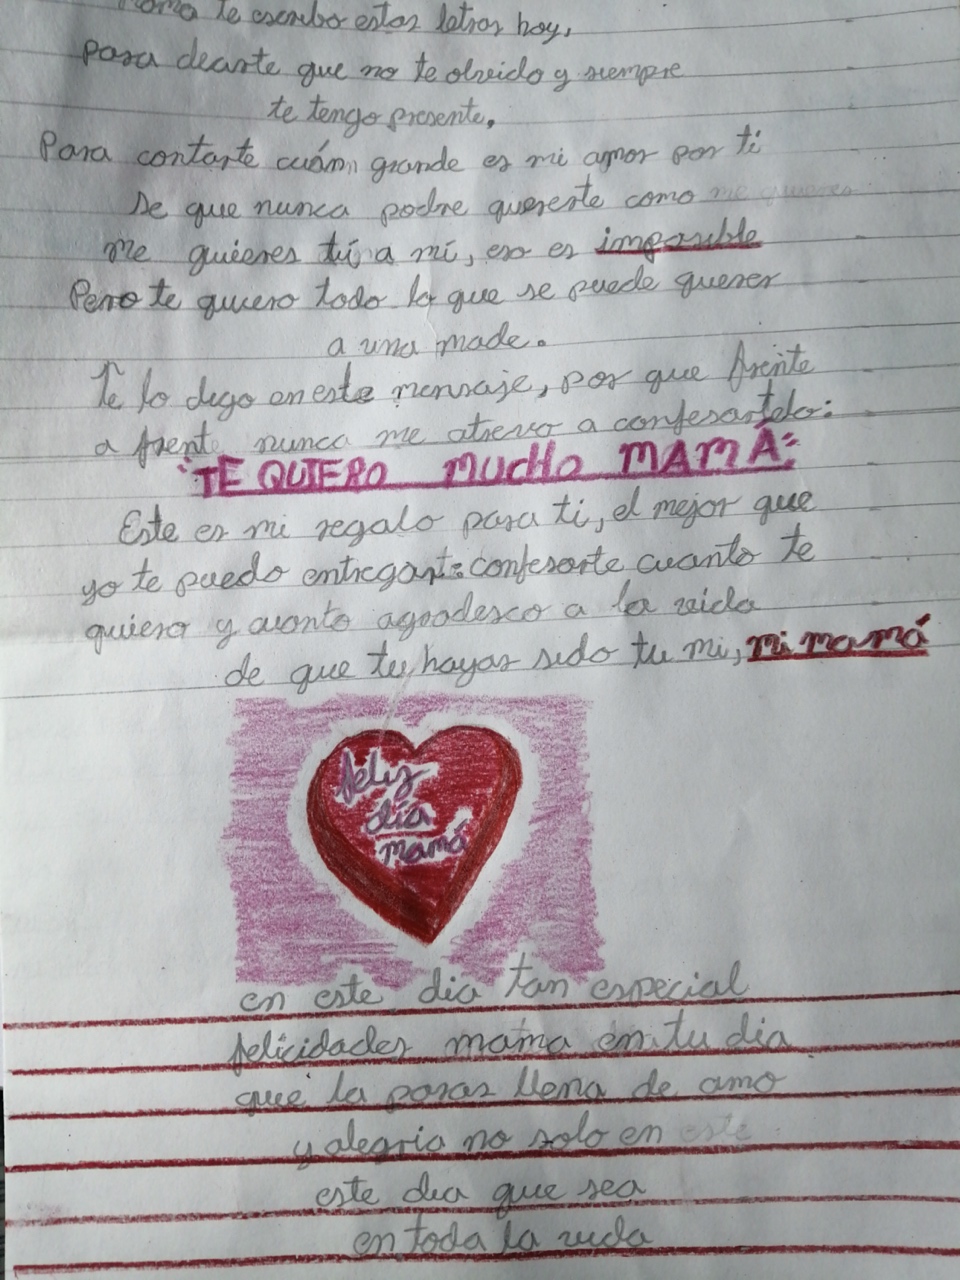 Mama te escribo estas letras hoy,
para decirte que no te olvido y siempre
te tengo presente.
Para contarte cuán grande es mi amor por ti
se que nunca podre quererte como me quieres
me quieres tú a mí, eso es imposible
Pero te quiero todo lo que se puede querer
a una made.
Te lo digo en este mensaje, por que frente
a frente nunca me atrevo a confesartelo:
¡TE QUIERO MUCHO MAMÁ!
Este es mi regalo para ti, el mejor que
yo te puedo entregar: confesarte cuanto te
quiero y cuanto agradesco a la vida
de que tu hayas sido tu mi, mi mamá
feliz
día
mamá
en este dia tan especial
felicidades mama en tu dia
que la pasas llena de amo
y alegria no solo en este
este dia que sea
en toda la vida